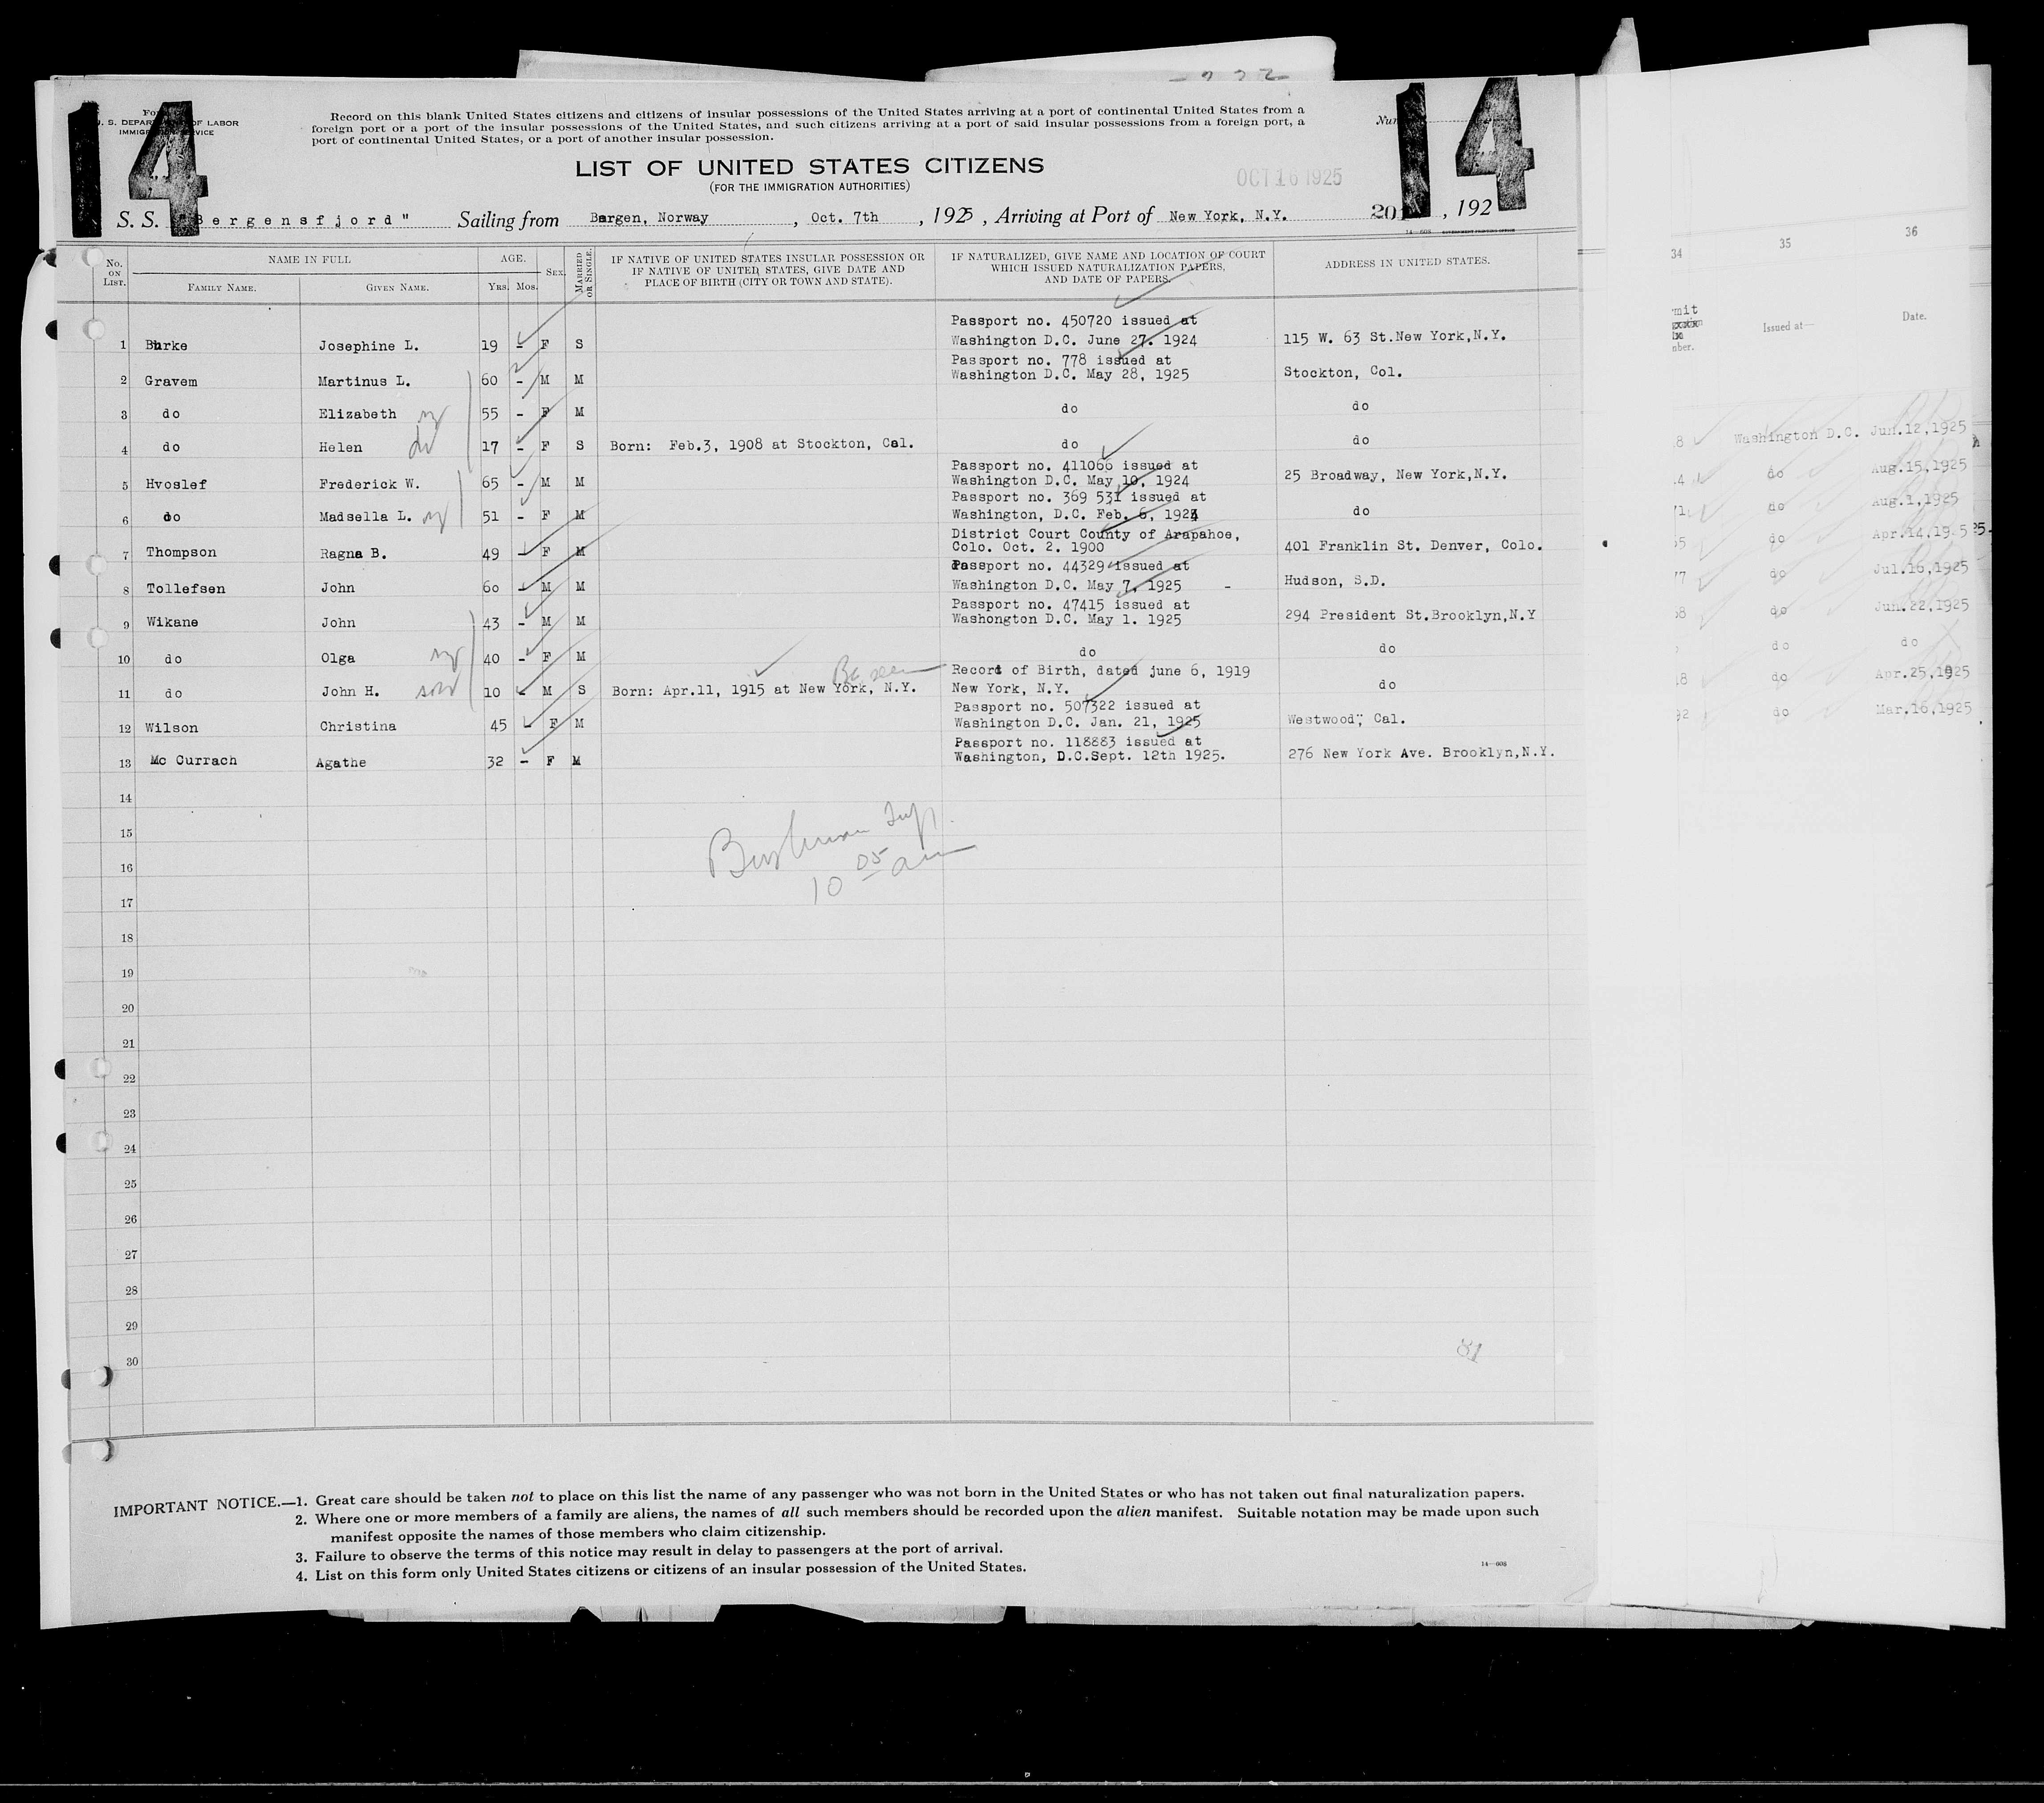 14
14
U. S. DEPARTMENT OF LABOR
IMMIGRATION SERVICE
Record on this blank United States citizens and citizens of insular possessions of the United States arriving at a port of continental United States from a
foreign port or a port of the insular possessions of the United States, and such citizens arriving at a port of said insular possessions from a foreign port, a
port of continental United States, or a port of another insular possession.
LIST OF UNITED STATES CITIZENS
(FOR THE IMMIGRATION AUTHORITIES)
OCT 16 1925
S. S. "Bergensfjord" Sailing from Bergen, Norway, Oct. 7th, 1925, Arriving at Port of New York, N.Y. , 192
No. ON LIST. NAME IN FULL AGE. SEX. MARRIED OR SINGLE. IF NATIVE OF UNITED STATES INSULAR POSSESSION OR IF NATIVE OF UNITED STATES, GIVE DATE AND PLACE OF BIRTH (CITY OR TOWN AND STATE). IF NATURALIZED, GIVE NAME AND LOCATION OF COURT WHICH ISSUED NATURALIZATION PAPERS, AND DATE OF PAPERS. ADDRESS IN UNITED STATES.
FAMILY NAME. GIVEN NAME. YRS. MOS.
Passport no. 450720 issued at
1 Burke Josephine L. 19 - F S Washington D.C. June 27. 1924 115 W. 63 St.New York,N.Y.
Passport no. 778 issued at
2 Gravem Martinus L. 60 - M M Washington D.C. May 28, 1925 Stockton, Col.
3 do Elizabeth 55 - F M do do
4 do Helen 17 - F S Born: Feb.3, 1908 at Stockton, Cal. do do
Passport no. 411066 issued at
5 Hvoslef Frederick W. 65 - M M Washington D.C. May 10, 1924 25 Broadway, New York,N.Y.
Passport no. 369 531 issued at
6 do Madsella L. 51 - F M Washington, D.C. Feb. 6, 1924 do
District Court County of Arapahoe,
7 Thompson Ragna B. 49 - F M Colo. Oct. 2. 1900 401 Franklin St. Denver, Colo.
Passport no. 44329 issued at
8 Tollefsen John 60 - M M Washington D.C. May 7. 1925 - Hudson, S.D.
Passport no. 47415 issued at
9 Wikane John 43 - M M Washongton D.C. May 1. 1925 294 President St.Brooklyn,N.Y
10 do Olga 40 - F M do do
Record of Birth, dated june 6, 1919
11 do John H. son 10 - M S Born: Apr.11, 1915 at New York, N.Y. New York, N.Y. do
Passport no. 507322 issued at
12 Wilson Christina 45 - F M Washington D.C. Jan. 21, 1925 Westwood, Cal.
Passport no. 118883 issued at
13 Mc Currach Agathe 32 - F M Washington, D.C.Sept. 12th 1925. 276 New York Ave. Brooklyn,N.Y.
14
15
16
10 05 am
17
18
19
20
21
22
23
24
25
26
27
28
29
30
81
IMPORTANT NOTICE.—1. Great care should be taken not to place on this list the name of any passenger who was not born in the United States or who has not taken out final naturalization papers.
2. Where one or more members of a family are aliens, the names of all such members should be recorded upon the alien manifest. Suitable notation may be made upon such
manifest opposite the names of those members who claim citizenship.
3. Failure to observe the terms of this notice may result in delay to passengers at the port of arrival.
4. List on this form only United States citizens or citizens of an insular possession of the United States.
14—608
34 35 36
Issued at— Date.
Washington D.C. Jun.12,1925
do Aug.15,1925
do Aug.1,1925
do Apr.14,1925
do Jul.16,1925
do Jun.22,1925
do do
do Apr.25,1925
do Mar.16,1925